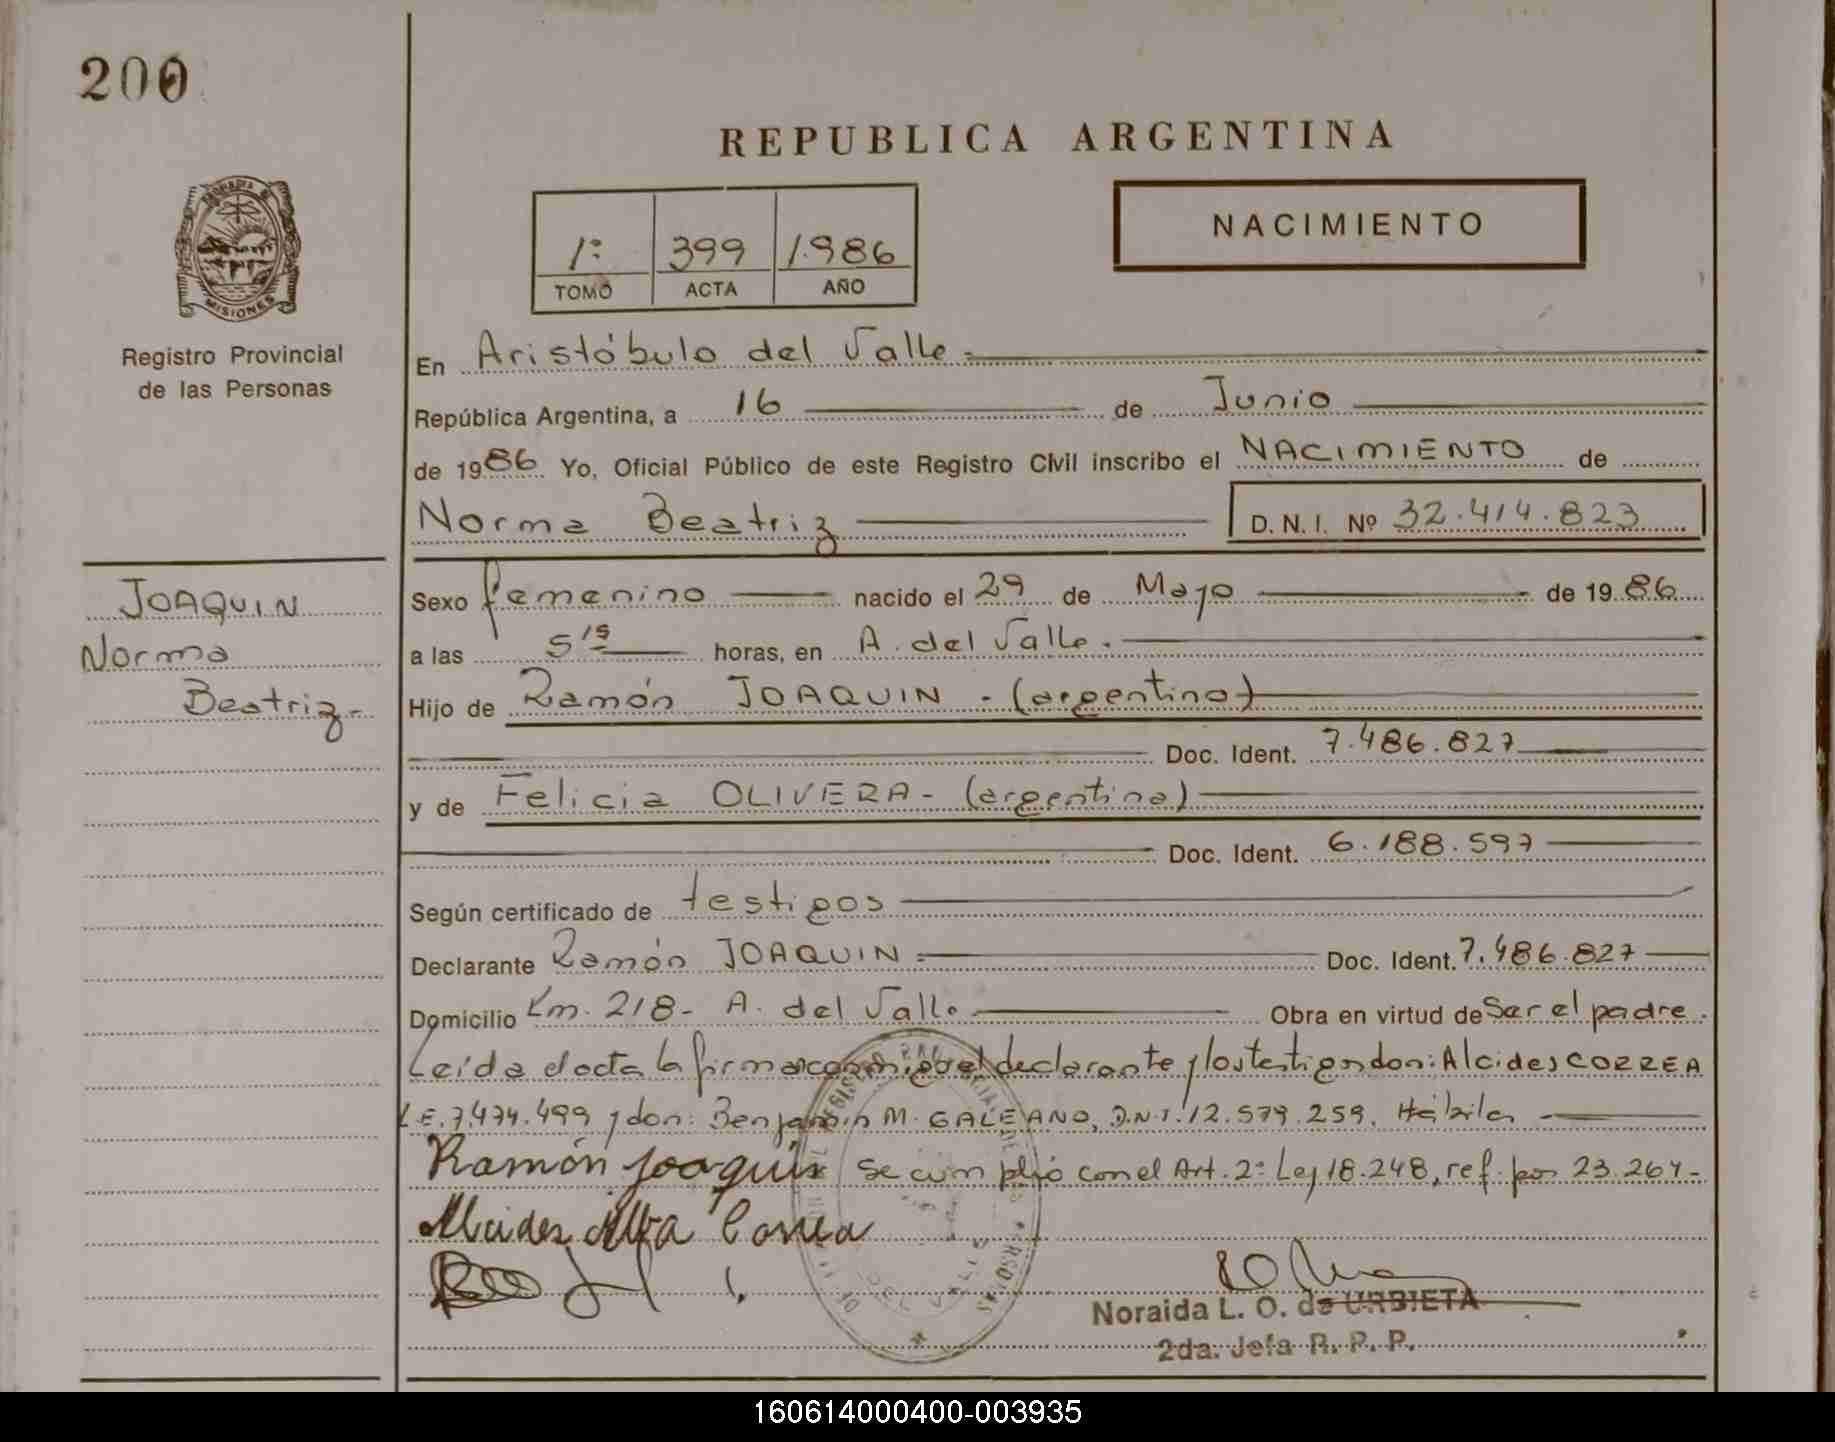 200
REPUBLICA ARGENTINA
MISIONES
Registro Provincial
de las Personas
1º 399 1.986
TOMO ACTA AÑO
NACIMIENTO
En Aristóbulo del Valle.-
República Argentina, a 16 de Junio
de 1986 Yo, Oficial Público de este Registro Civil inscribo el NACIMIENTO de
Norma Beatriz D. N. I. Nº 32.414.823
JOAQUIN
Norma
Beatriz.-
Sexo femenino nacido el 29 de Mayo de 1986
a las 5 15 horas, en A. del Valle.
Hijo de Ramón JOAQUIN - (argentino)
Doc. Ident. 7.486.827
y de Felicia OLIVERA - (argentina)
Doc. Ident. 6.188.597
Según certificado de testigos
Declarante Ramón JOAQUIN Doc. Ident. 7.486.827
Domicilio Km. 218- A. del Valle Obra en virtud de Ser el padre.
Leída el acta la firman conmigo el declarante y los testigos don: Alcides CORREA
L.E. 7.474.499 y don: Benjamin M. GALEANO, D.N.I. 12.579.259. Hábiles
Ramón Joaquin se cumplió con el Art. 2º Ley 18.248, ref. por 23.264-
Alcides Correa
Noraida L. O. de URBIETA
2da. Jefa R. P. P.
160614000400-003935